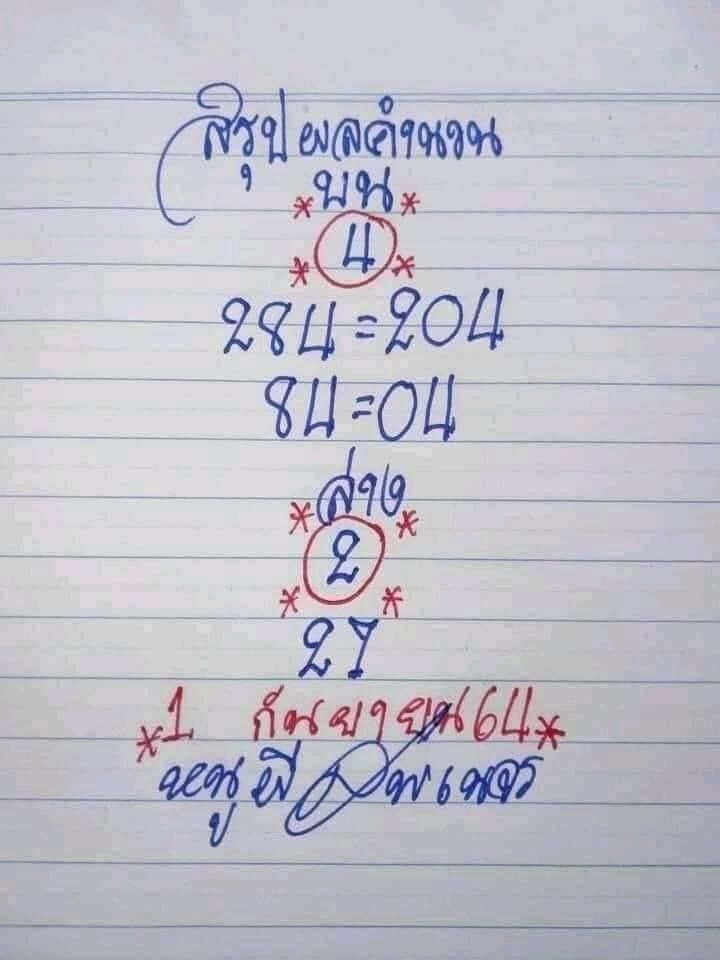 สรุปผลคำนวน
*บน*
*4*
284=204
84=04
*ล่าง*
*2*
27
*1 กันยายน64*
หนูผี พเนจร